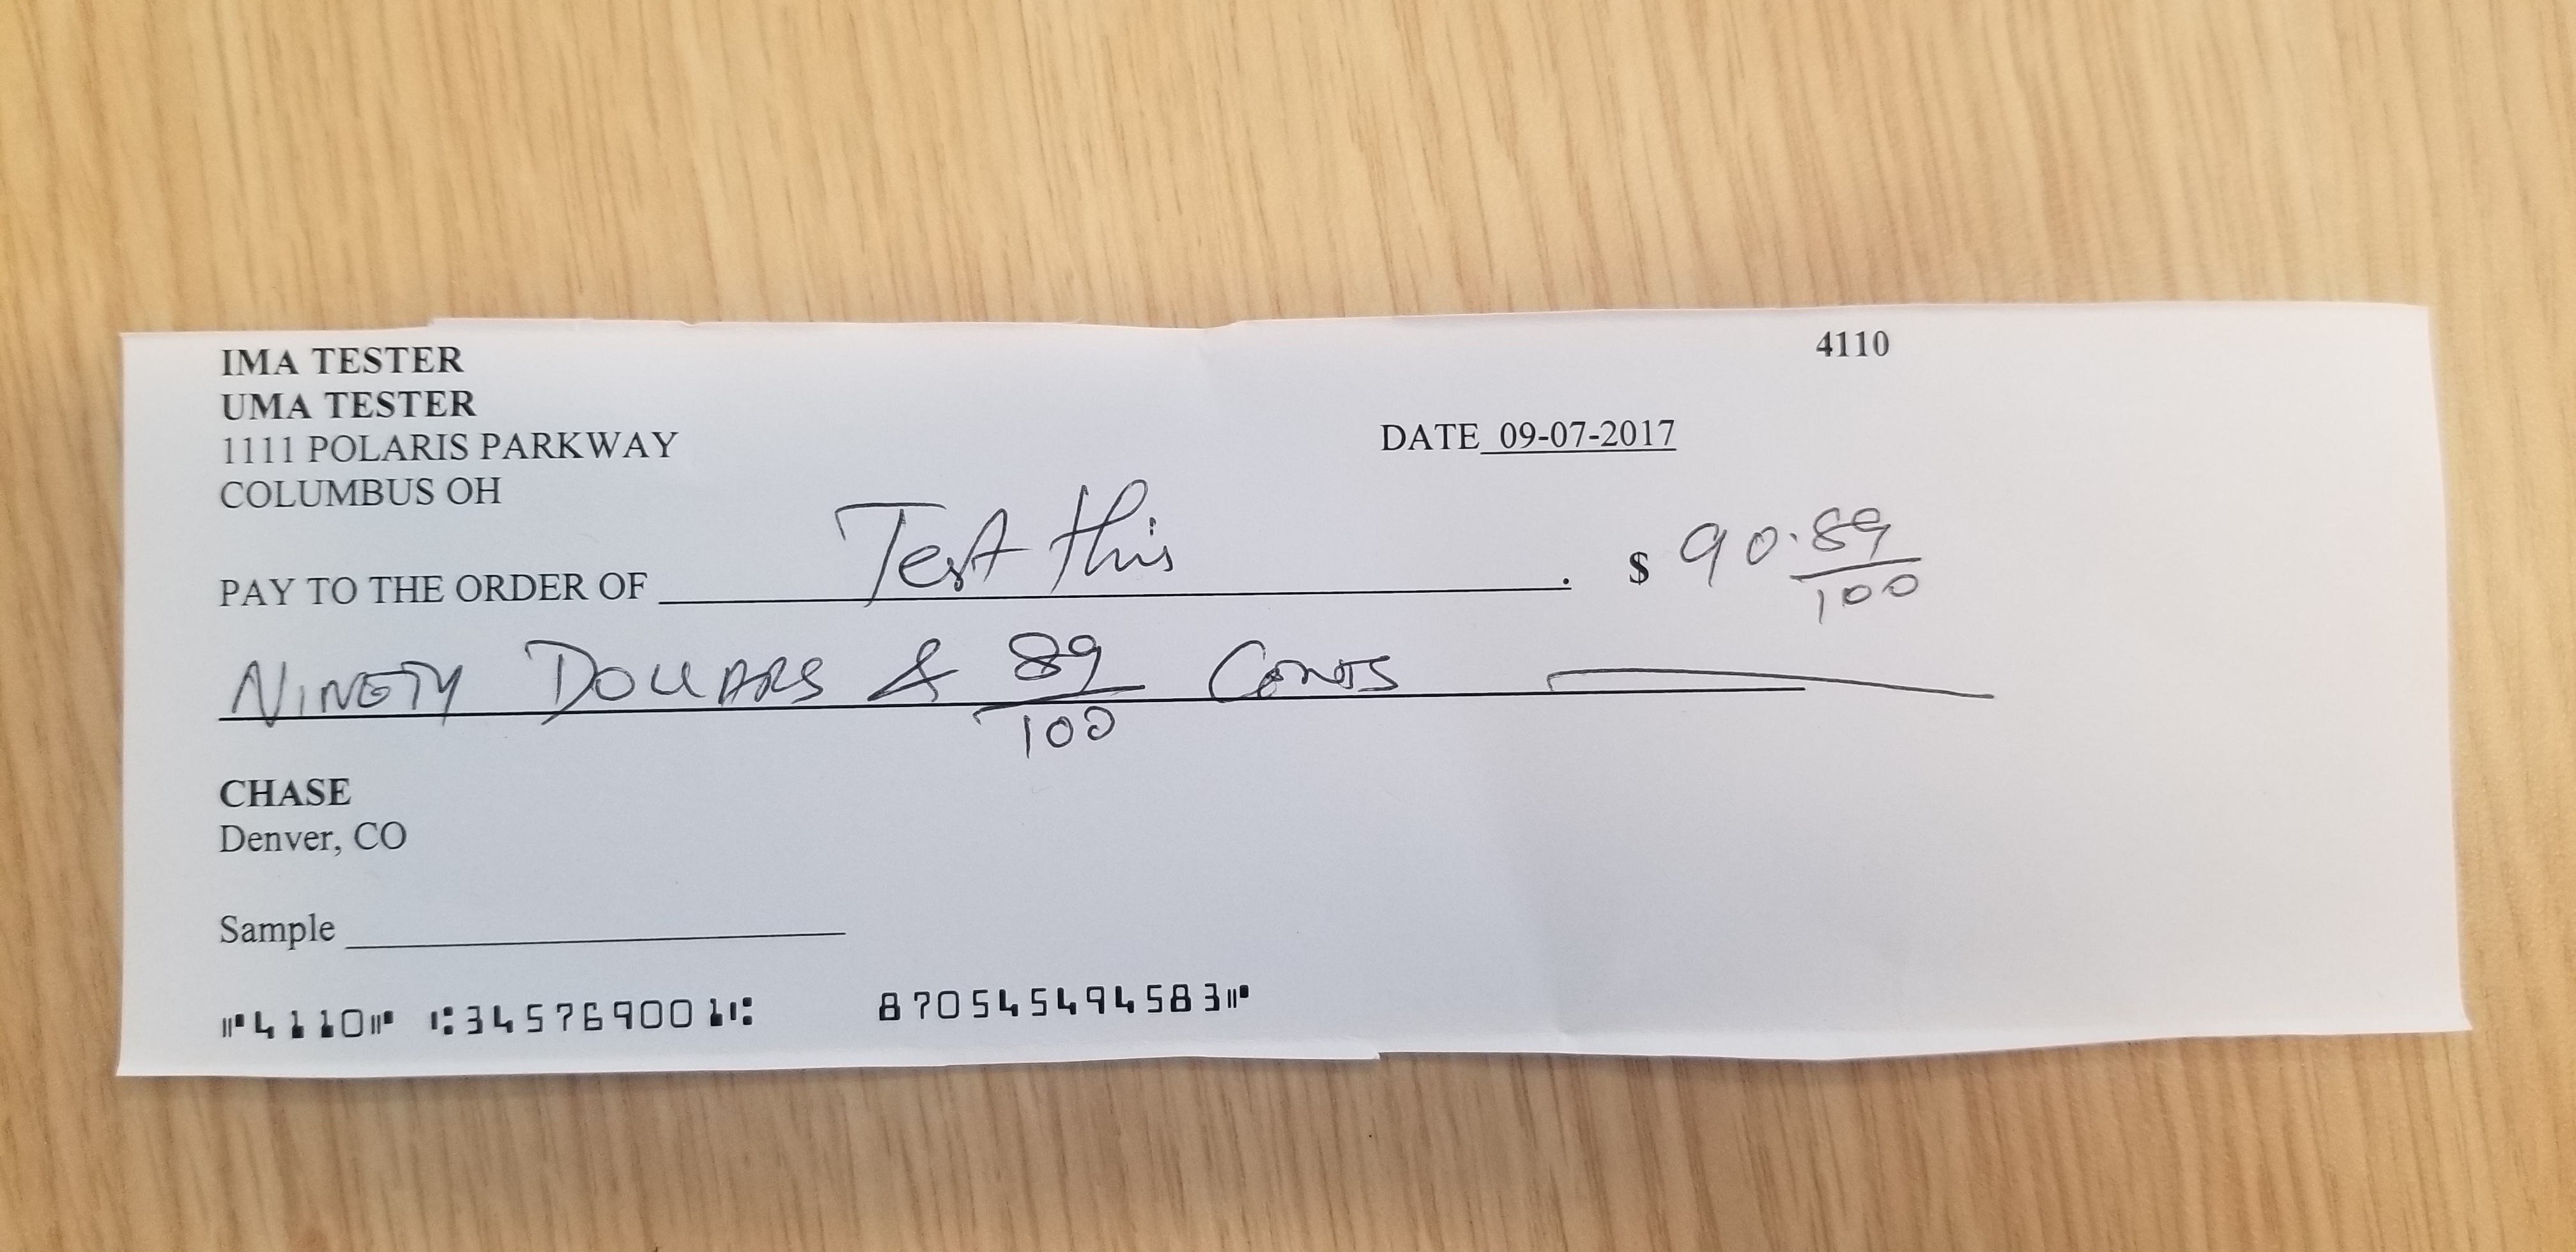 IMA TESTER 4110
UMA TESTER
1111 POLARIS PARKWAY DATE 09-07-2017
COLUMBUS OH
PAY TO THE ORDER OF Test this . $ 90.89/100
NINETY DOLLARS & 89/100 CENTS
CHASE
Denver, CO
Sample
⑈4110⑈ ⑆345769001⑆ 870545494583⑈